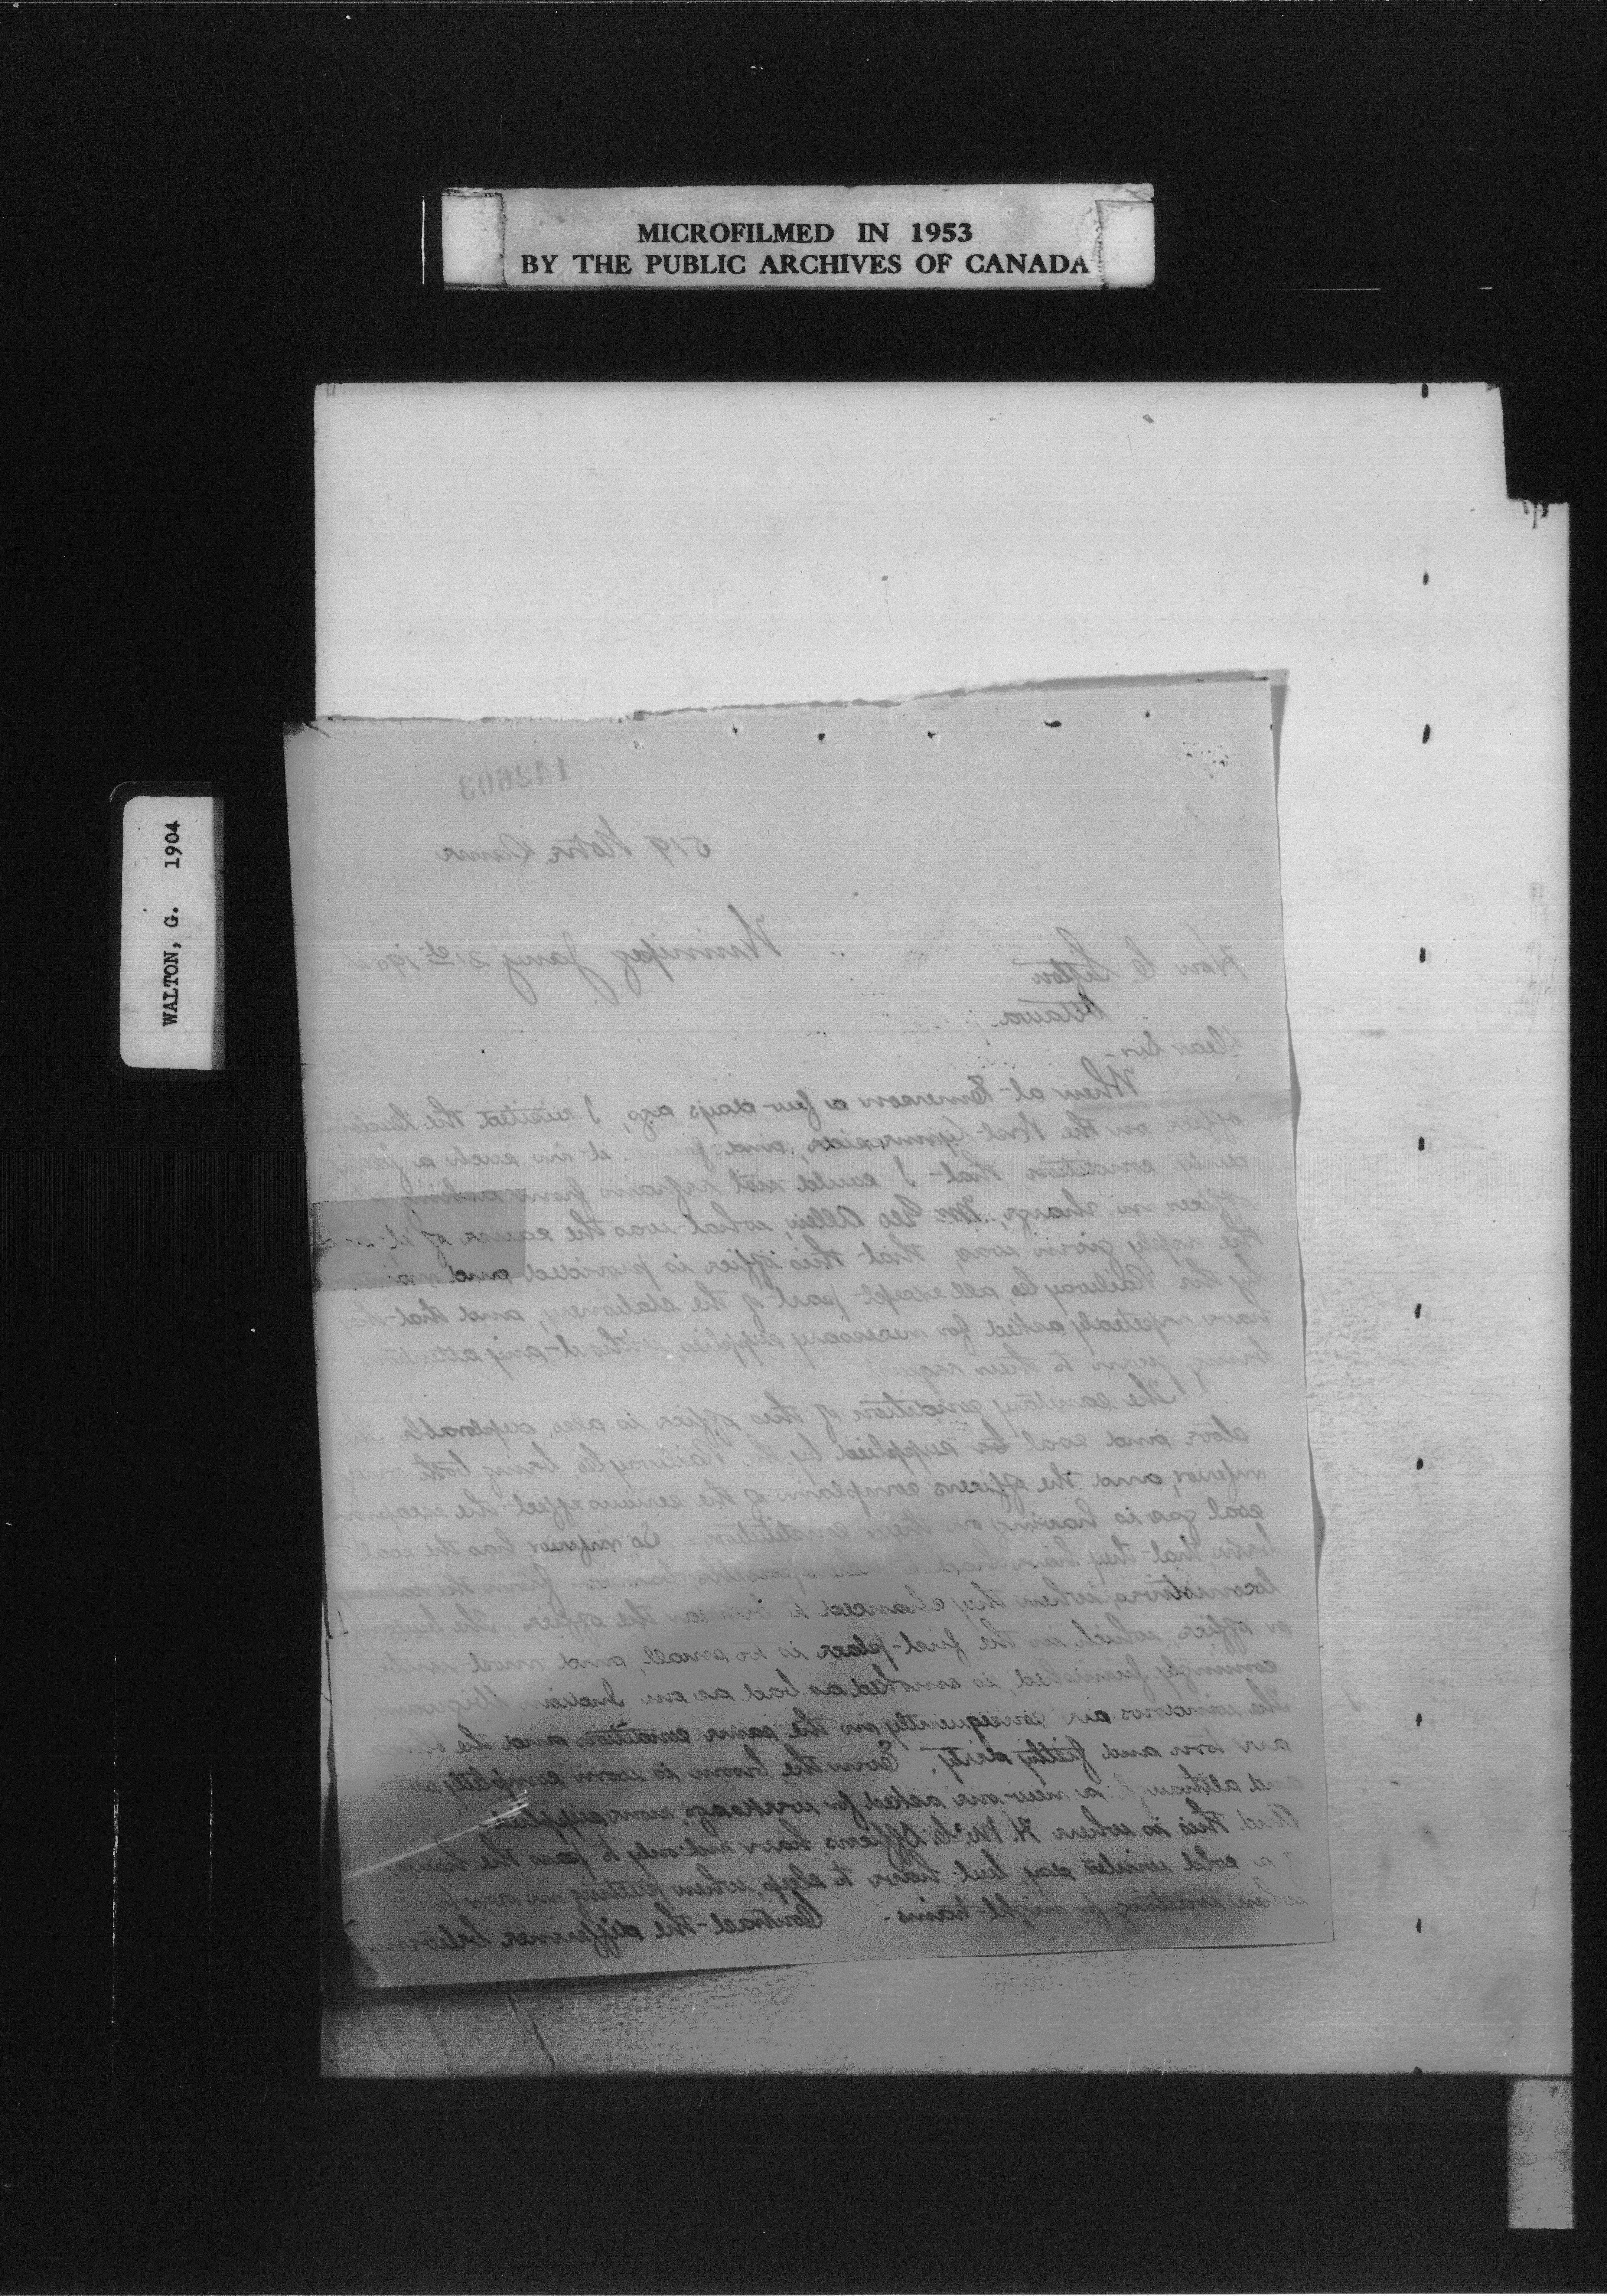 MICROFILMED IN 1953
BY THE PUBLIC ARCHIVES OF CANADA
WALTON, G. 1904
142603
519 Notre Dame
Winnipeg Jany 21st 190
Hon C. Sifton
Ottawa
Dear Sir-
When at Emerson a few days ago, I visited the
office on the West Lynne side, and found it in such a
dirty condition that I could not refrain from asking
officer in charge, Mr. Geo Allen, what was the cause of it
The reply given was, that this office is provided and
by the Railway Co, all except part of the stationery, and that
have repeatedly asked for necessary supplies, without any attention
being given to their
The sanitary condition of this office is also The
stove and coal supplied by the Railway Co being both very
inferior, and the officers complain of the serious effect the escaping
coal gas is having on their constitution - So inferior has the coal
been, that they have had to from the
locomotives when they chanced to be near the office. The
or office, which in the first place is too small, and most
furnished, is smoked as bad as an Indian Wigwam
The windows are consequently in the same condition and the
are torn and filthy dirty. Even the broom is worn completely
and although a new one asked for weeks ago, none supplied.
And this is where H. M. C. Officers have not only to pass the
of a cold winter day, but have to sleep, when putting in
when waiting for night trains. Contrast the difference between